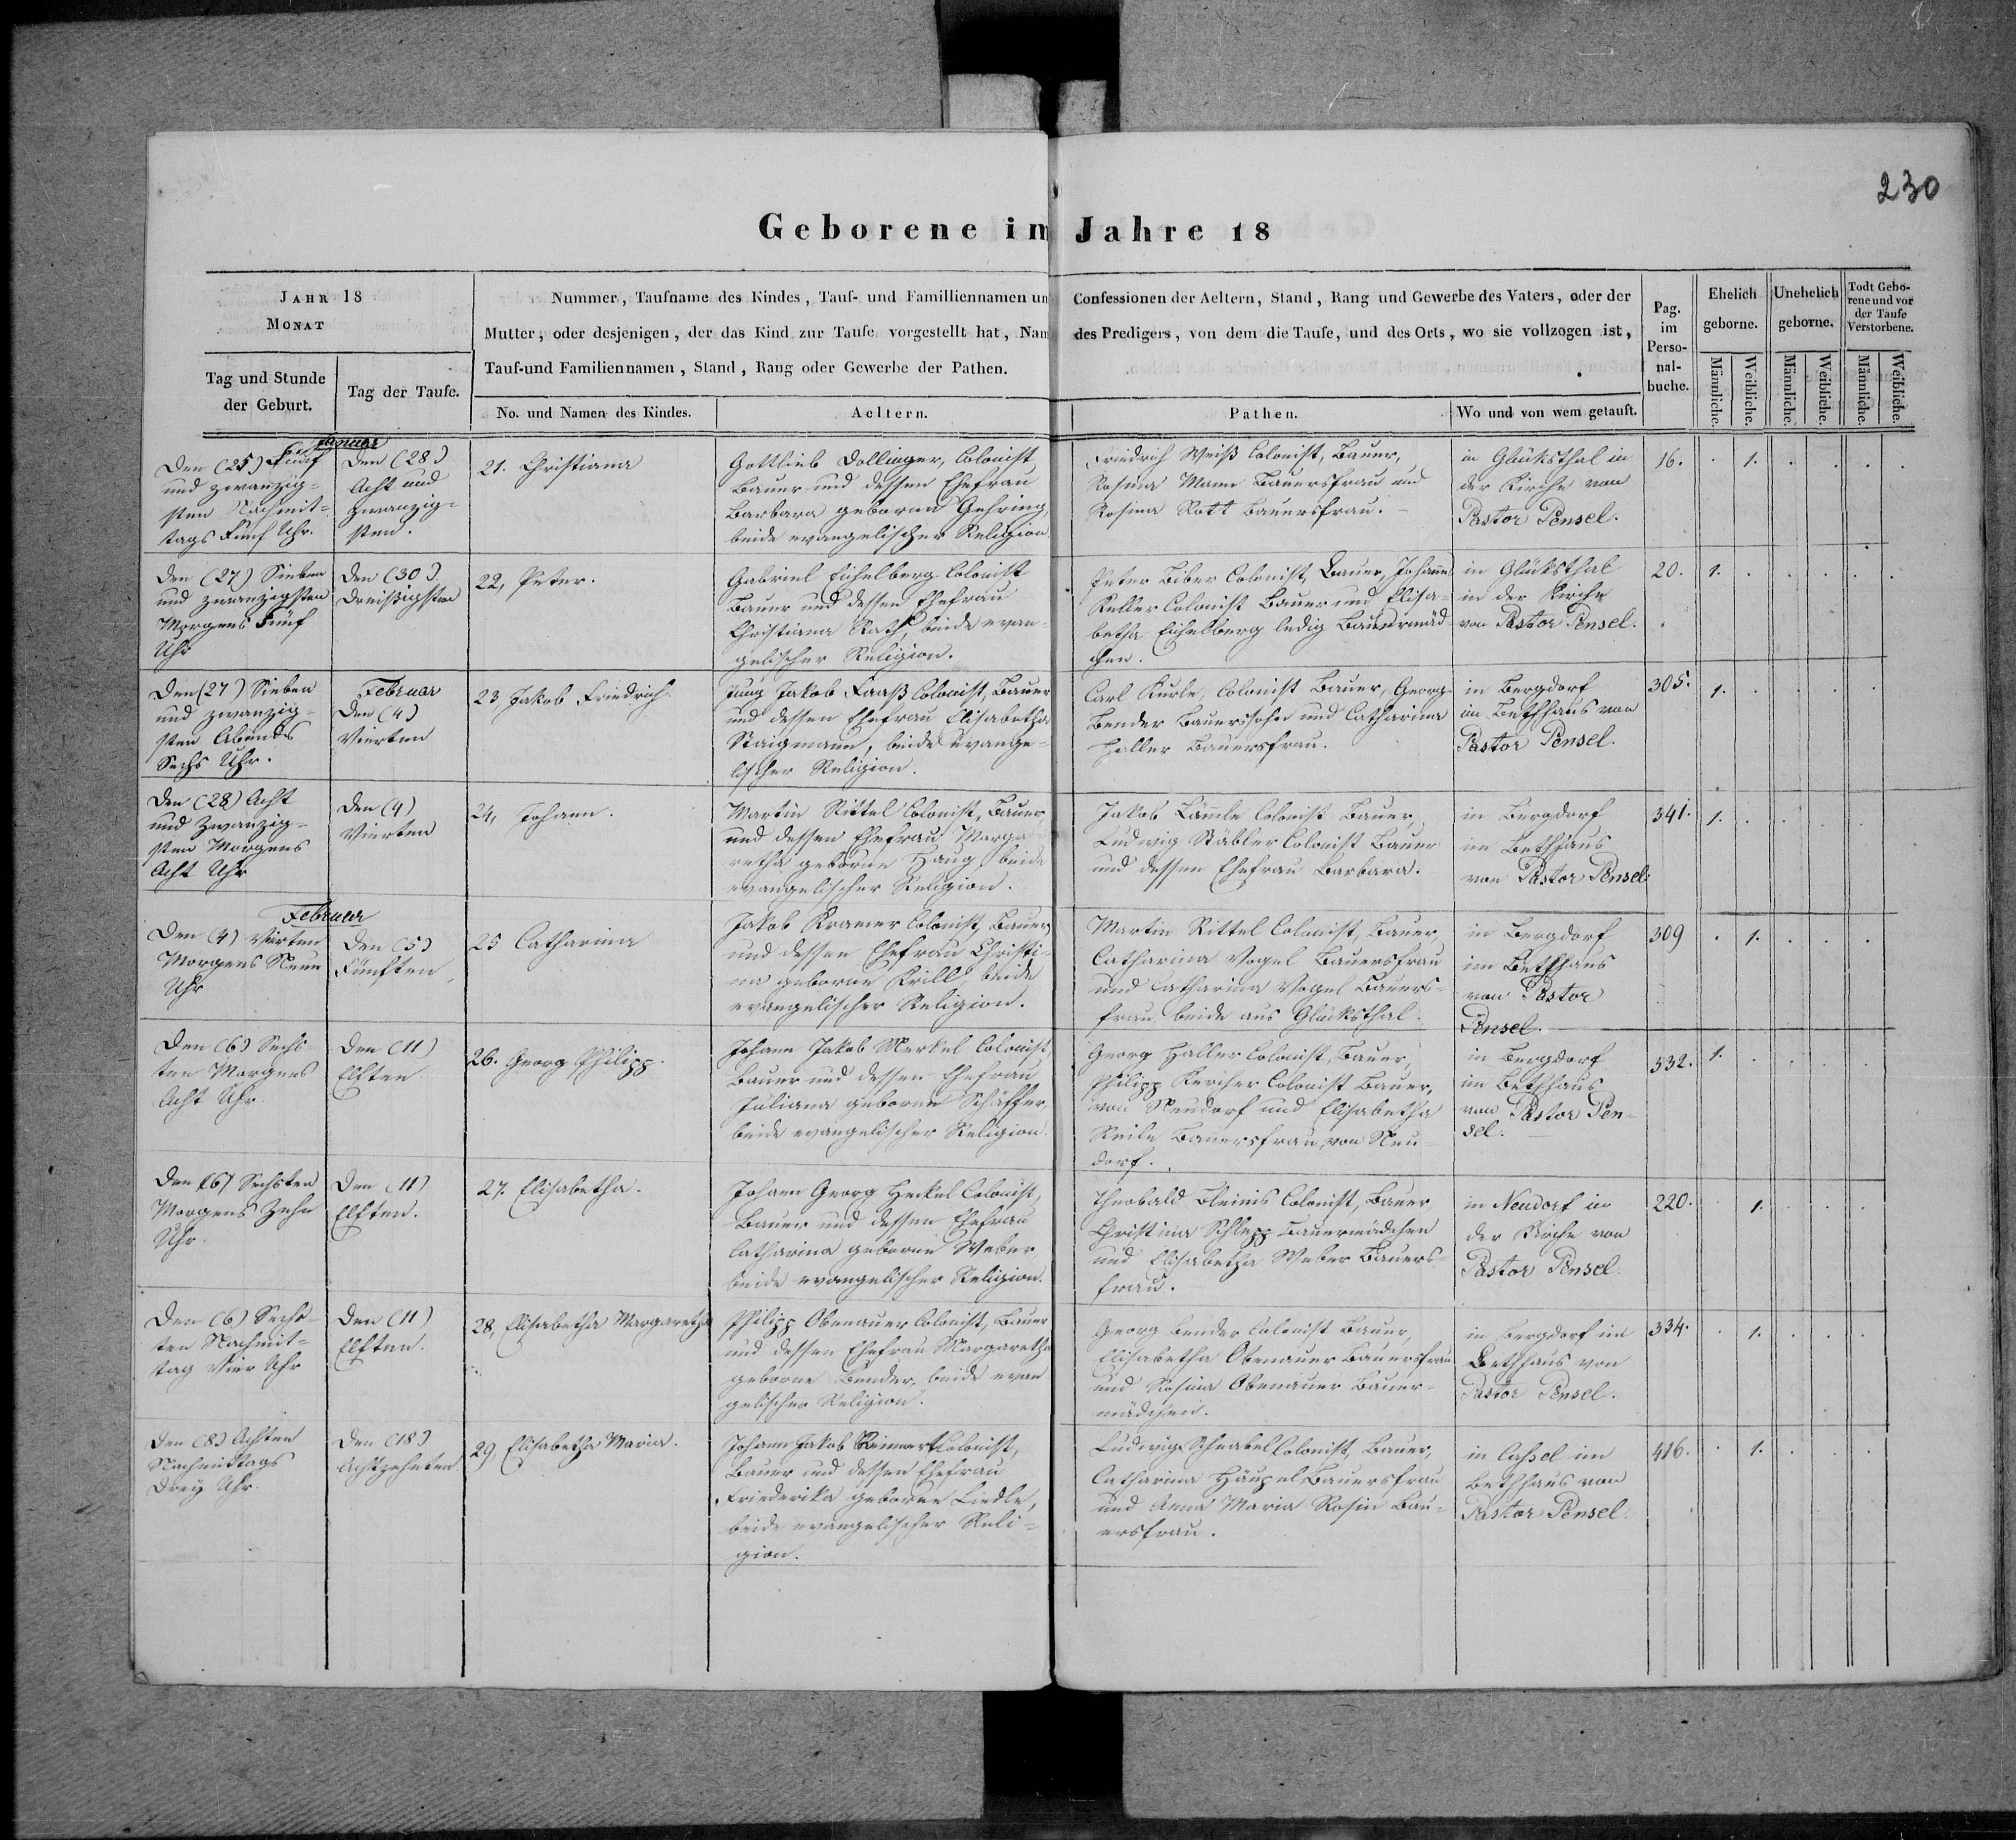 230
Geborene im Jahre 18
JAHR 18
MONAT
Tag und Stunde
der Geburt.
Tag der Taufe.
Nummer, Taufname des Kindes, Tauf- und Familliennamen un
Mutter, oder desjenigen, der das Kind zur Taufe vorgestellt hat, Nam
Tauf-und Familiennamen, Stand, Rang oder Gewerbe der Pathen.
No. und Namen des Kindes.
Aeltern.
Confessionen der Aeltern, Stand, Rang und Gewerbe des Vaters, oder der
des Predigers, von dem die Taufe, und des Orts, wo sie vollzogen ist,
Pathen.
Wo und von wem getauft.
Pag.
im
Perso-
nal-
buche.
Ehelich
geborne.
Unehelich
geborne.
Todt Gebo-
rene und vor
der Taufe
Verstorbene.
Männliche.
Weibliche.
Männliche.
Weibliche.
Männliche.
Weibliche.
Januar
Den (25) Fünf
und zwanzig-
sten Nachmit-
tags Fünf Uhr.
Den (28)
Acht und
zwanzig-
sten.
21. Christiana
Gottlieb Dollinger, Colonist
Bauer und dessen Ehefrau
Barbara geborne Gehring,
beide evangelischer Religion
Friedrich Weiß Colonist, Bauer,
Rosina Bauersfrau und
Rosina Rott Bauersfrau.
in Glüksthal in
der Kirche von
Pastor Pensel.
16. 1.
Den (27) Sieben
und zwanzigsten
Morgens Fünf
Uhr
Den (30)
Dreißigsten
22, Peter.
Gabriel Eichelberg Colonist
Bauer und dessen Ehefrau
Christiana Rath, beide evan-
gelischer Religion.
Peter Biber Colonist, Bauer, Johann
Keller Colonist Bauer und Elisa-
betha Eichelberg ledig Bauermäd-
chen.
in Glüksthal
in der Kirche
von Pastor Pensel.
20. 1.
Den (27) Sieben
und zwanzig-
sten Abends
Sechs Uhr.
Februar
Den (4)
Vierten
23 Jakob Friedrich.
Jung Jakob Faaß Colonist, Bauer
und dessen Ehefrau Elisabetha
Staigmann, beide evange-
lischer Religion.
Carl Kurle, Colonist Bauer, Georg
Bender Bauerssohn und Catharina
Haller Bauersfrau.
in Bergdorf
im Bethhaus von
Pastor Pensel.
305. 1.
Den (28) Acht
und Zwanzig-
sten Morgens
Acht Uhr
Den (4)
Vierten
24, Johann.
Martin Rittel Colonist, Bauer,
und dessen Ehefrau Marga-
retha geborne Haug beide
evangelischer Religion.
Jakob Lämle Colonist Bauer,
Ludwig Stäbler Colonist Bauer
und dessen Ehefrau Barbara.
in Bergdorf
im Bethhaus
von Pastor Pensel.
341. 1.
Februar
Den (4) Vierten
Morgens Neun
Uhr
Den (5)
Fünften
25 Catharina
Jakob Kramer Colonist, Bauer
und dessen Ehefrau Christi-
na geborne Krill, beide
evangelischer Religion.
Martin Rittel Colonist, Bauer,
Catharina Vogel Bauersfrau
und Catharina Vogel Bauers-
frau beide aus Glüksthal.
in Bergdorf
im Bethhaus
von Pastor
Pensel.
309 1.
Den (6) Sechs-
ten Morgens
Acht Uhr.
Den (11)
Elften
26. Georg Philipp.
Johann Jakob Merkel Colonist
Bauer und dessen Ehefrau
Juliana geborne Schäffer,
beide evangelischer Religion.
Georg Haller Colonist, Bauer,
Philipp Kercher Colonist Bauer,
von Neudorf und Elisabetha
Reile Bauersfrau von Neu-
dorf.
in Bergdorf
im Bethhaus
von Pastor Pen-
sel.
332. 1.
Den (6) Sechsten
Morgens Zehn
Uhr.
Den (11)
Elften.
27. Elisabetha.
Johann Georg Heckel Colonist,
Bauer und dessen Ehefrau
Catharina geborne Weber
beide evangelischer Religion.
Theobald Colonist, Bauer
Christina Schlepp Bauermädchen
und Elisabetha Weber Bauers-
frau.
in Neudorf in
der Kirche von
Pastor Pensel.
220. 1.
Den (6) Sechs-
ten Nachmit-
tag Vier Uhr
Den (11)
Elften.
28, Elisabetha Margaretha
Philipp Obenauer Colonist, Bauer
und dessen Ehefrau Margaretha
geborne Bender, beide evan
gelischer Religion.
Georg Bender Colonist Bauer,
Elisabetha Obenauer Bauersfrau
und Rosina Obenauer Bauer-
mädchen.
in Bergdorf im
Bethhaus von
Pastor Pensel.
334. 1.
Den (8) Achten
Nachmittags
Drey Uhr.
Den (18)
Achtzehnten.
29, Elisabetha Maria.
Johann Jakob Reimert Colonist,
Bauer und dessen Ehefrau
Friederika geborne Liedle,
beide evangelischer Reli-
gion.
Ludwig Schnabel Colonist, Bauer,
Catharina Häupel Bauersfrau
und Anna Maria Rosin Bau-
ersfrau.
in Cassel im
Bethhaus von
Pastor Pensel.
416. 1.